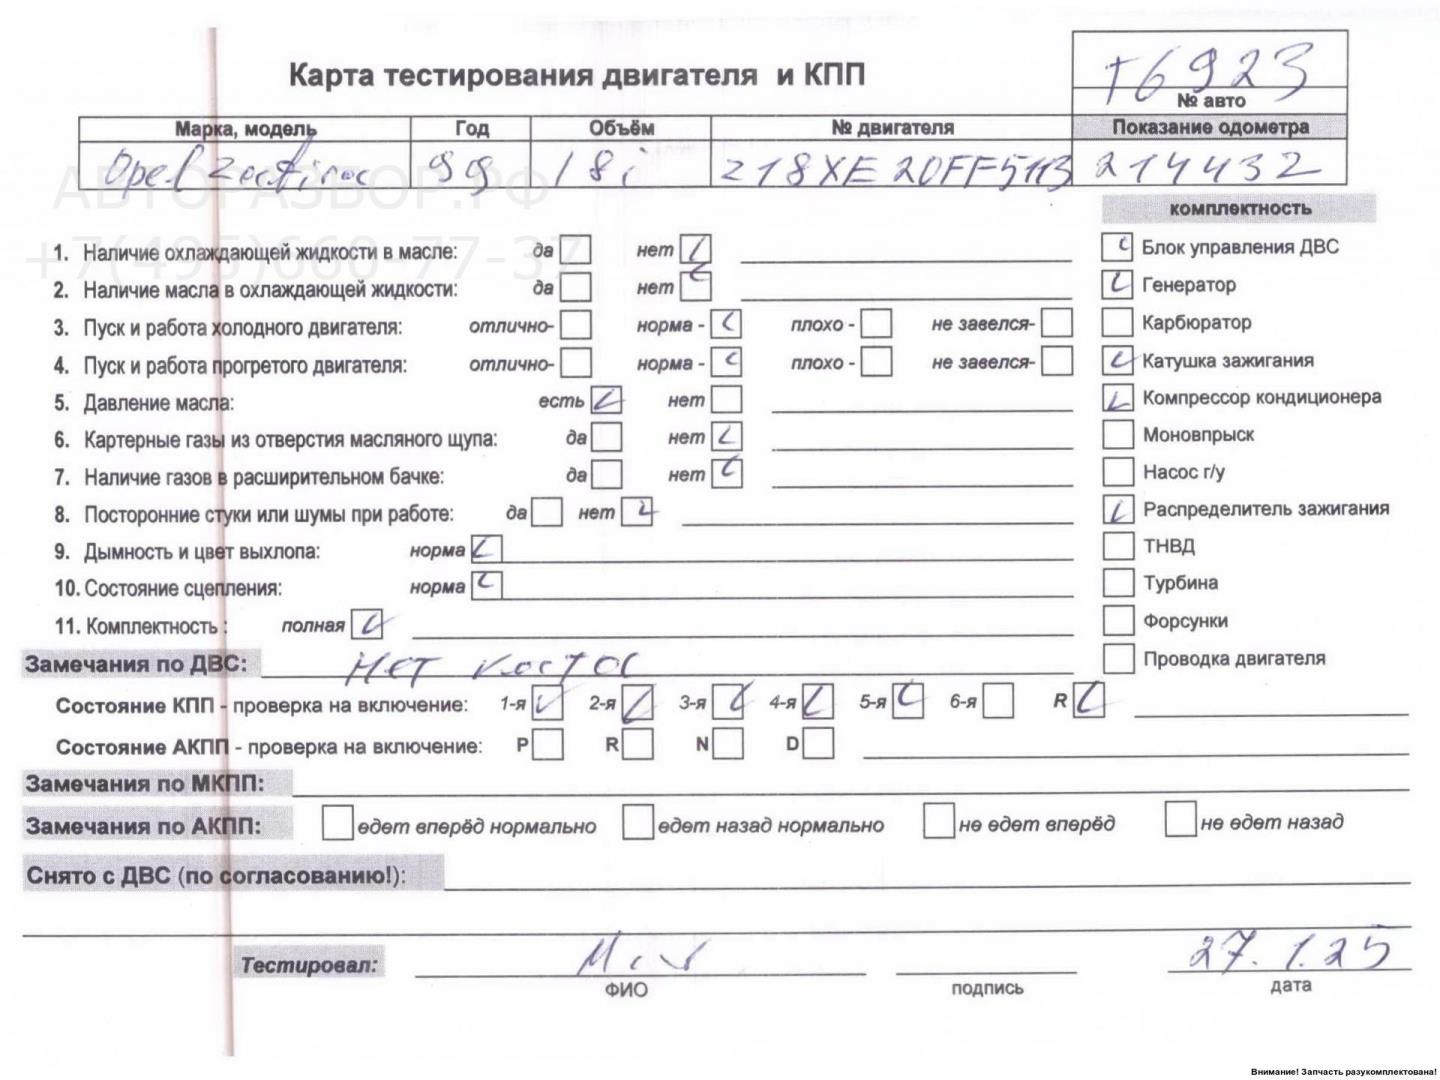 Карта тестирования двигателя и КПП
Т6923
№ авто
Марка, модель Год Объём № двигателя Показание одометра
Opel Zafira 99 18i Z18XE 20FF5113 214432
АВТОРАЗБОР.РФ
+7(495)660-77-37
комплектность
1. Наличие охлаждающей жидкости в масле: да нет Блок управления ДВС
2. Наличие масла в охлаждающей жидкости: да нет Генератор
3. Пуск и работа холодного двигателя: отлично- норма - плохо - не завелся- Карбюратор
4. Пуск и работа прогретого двигателя: отлично- норма - плохо - не завелся- Катушка зажигания
5. Давление масла: есть нет Компрессор кондиционера
6. Картерные газы из отверстия масляного щупа: да нет Моновпрыск
7. Наличие газов в расширительном бачке: да нет Насос г/у
8. Посторонние стуки или шумы при работе: да нет Распределитель зажигания
9. Дымность и цвет выхлопа: норма ТНВД
10. Состояние сцепления: норма Турбина
11. Комплектность : полная Форсунки
Замечания по ДВС: Нет Проводка двигателя
Состояние КПП - проверка на включение: 1-я 2-я 3-я 4-я 5-я 6-я R
Состояние АКПП - проверка на включение: P R N D
Замечания по МКПП:
Замечания по АКПП: едет вперёд нормально едет назад нормально не едет вперёд не едет назад
Снято с ДВС (по согласованию!):
Тестировал: 27.1.25
ФИО подпись дата
Внимание! Запчасть разукомплектована!